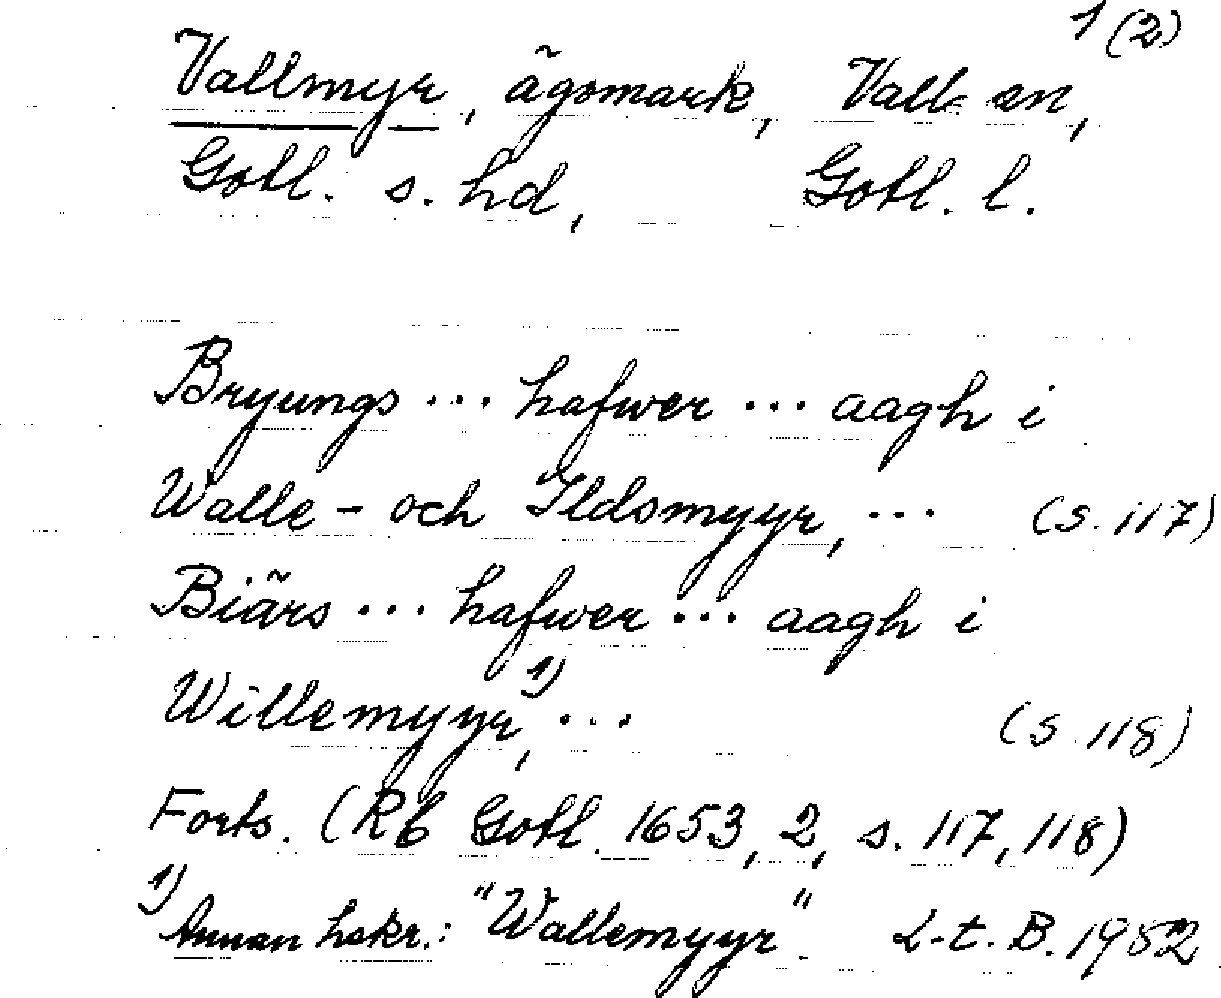 1 (2)
Vallmyr, ägomark, Valls sn,
Gotl. s. hd, Gotl. l.
Bryungs ... hafwer ... aagh i
Walle - och Ildsmyyr, ... (s. 117)
Biärs ... hafwer ... aagh i
Willemyyr,1) ... (s. 118)
Forts. (Rb Gotl. 1653, 2, s. 117, 118)
1) Annan hskr.: "Wallemyyr". L-t. B. 1952